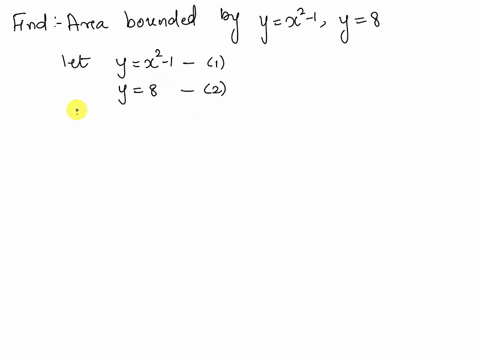 Find :- Area bounded by y = x²-1, y = 8
let y = x²-1 - (1)
y = 8 - (2)